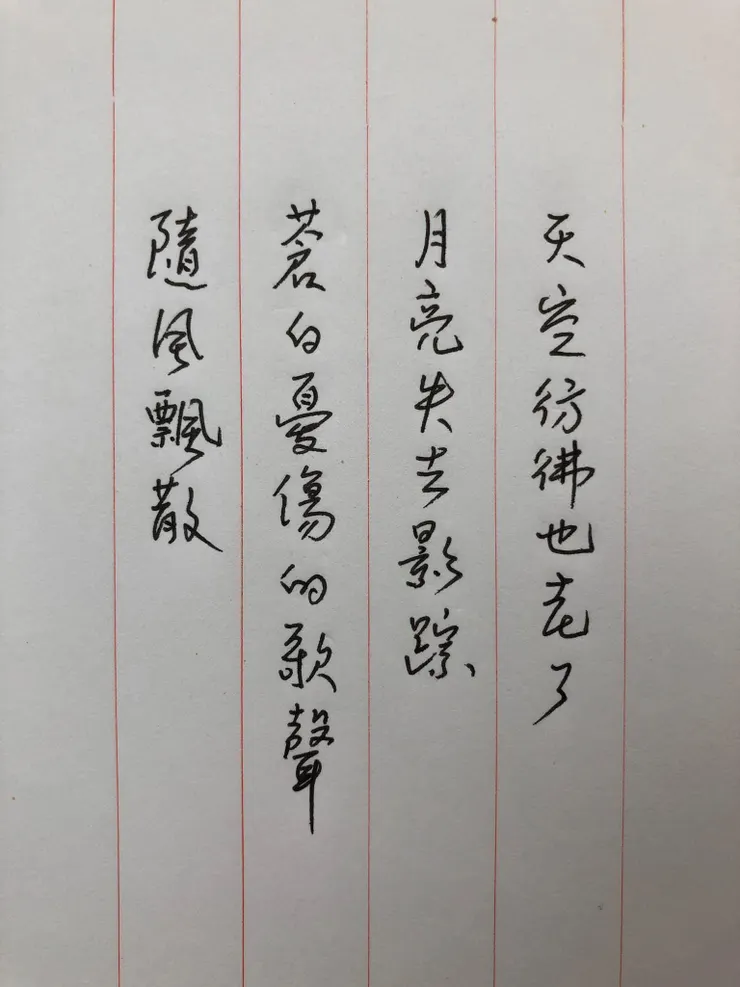 天空彷彿也走了
月亮失去影踪
蒼白憂傷的歌聲
隨風飄散